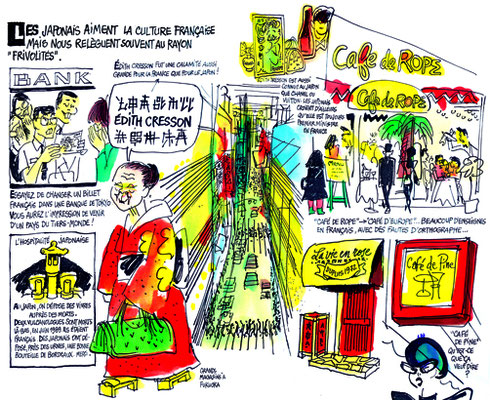 LES JAPONAIS AIMENT LA CULTURE FRANÇAISE
MAIS NOUS RELÈGUENT SOUVENT AU RAYON
"FRIVOLITÉS".
BANK
ESSAYEZ DE CHANGER UN BILLET
FRANÇAIS DANS UNE BANQUE DE TOKYO
VOUS AUREZ L'IMPRESSION DE VENIR
D'UN PAYS DU TIERS-MONDE!
L'HOSPITALITÉ JAPONAISE
AU JAPON, ON DÉPOSE DES VIVRES
AUPRÈS DES MORTS.
DEUX VULCANOLOGUES SONT MORTS
LÀ-BAS, EN JUIN 1991. ILS ÉTAIENT
FRANÇAIS. DES JAPONAIS ONT DÉ-
POSÉ, PRÈS DES URNES, UNE BONNE
BOUTEILLE DE BORDEAUX. MERCI.
ÉDITH CRESSON FUT UNE CALAMITÉ AUSSI
GRANDE POUR LA FRANCE QUE POUR LE JAPON!
ÉDITH CRESSON
GRANDS
MAGASINS À
FUKUOKA
ÉDITH CRESSON EST AUSSI
CONNUE AU JAPON
QUE CHANEL OU
VUITTON. LES JAPONAIS
CROIENT D'AILLEURS
QU'ELLE EST TOUJOURS
PREMIER MINISTRE
EN FRANCE
Café de ROPE
Café de ROPE
"CAFÉ DE ROPE" → "CAFÉ D'EUROPE"... BEAUCOUP D'ENSEIGNES
EN FRANÇAIS, AVEC DES FAUTES D'ORTHOGRAPHE...
La vie en rose
DEPUIS 1982
Café de Pine
"CAFÉ
DE PINE"
QU'EST-CE
QUE ÇA
VEUT DIRE
?